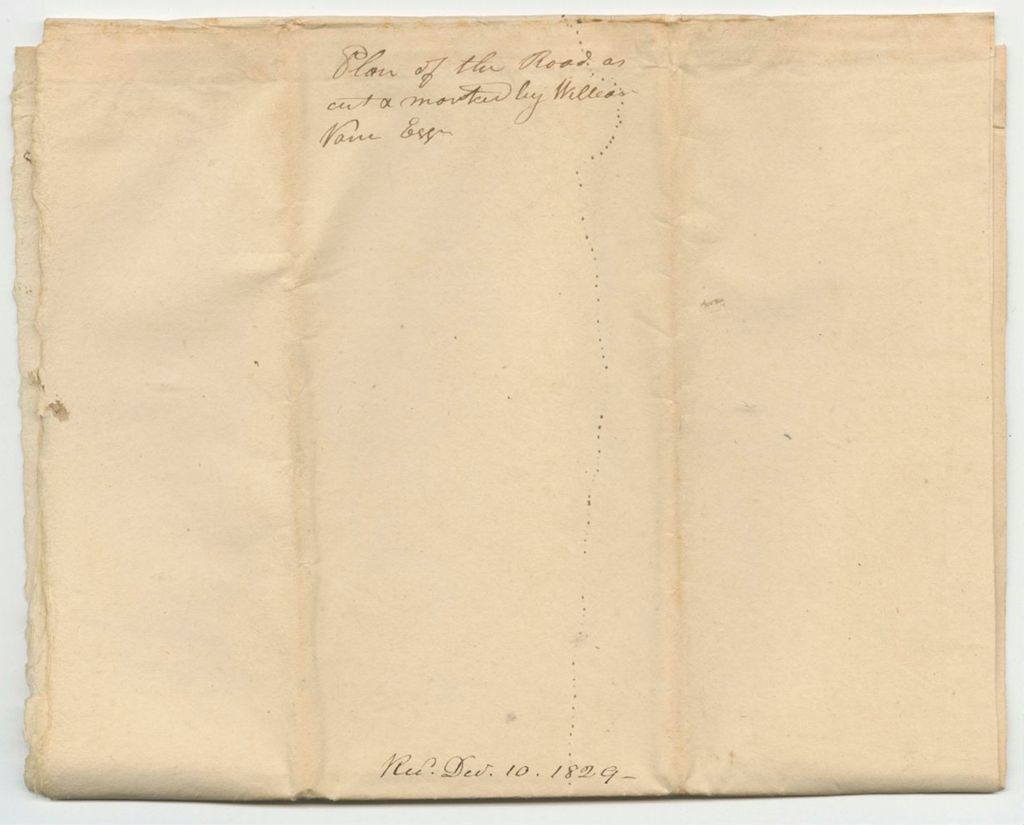 Plan of the Road as
cut & marked by William
Vance Esqr
Rec'd. Dec. 10. 1829-